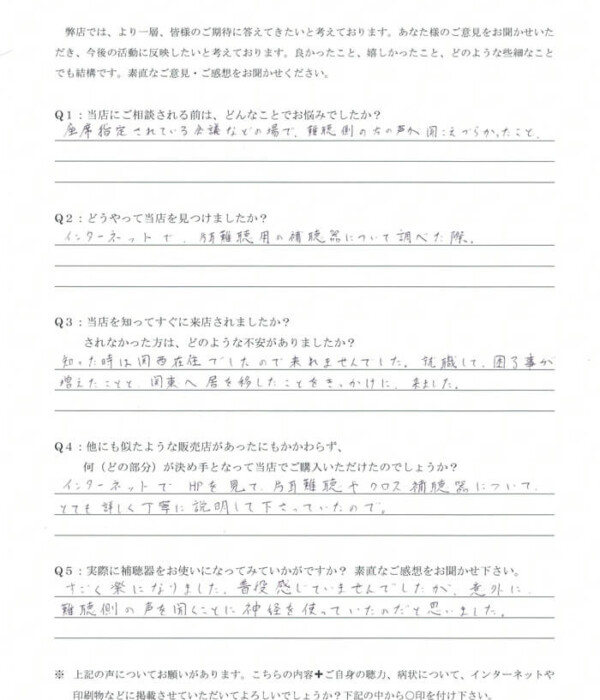 弊店では、より一層、皆様のご期待に答えてきたいと考えております。あなた様のご意見をお聞かせいた
だき、今後の活動に反映したいと考えております。良かったこと、嬉しかったこと、どのような些細なこと
でも結構です。素直なご意見・ご感想をお聞かせください。
Q1：当店にご相談される前は、どんなことでお悩みでしたか？
座席指定されている会議などの場で、難聴側の方の声が聞こえづらかったこと。
Q2：どうやって当店を見つけましたか？
インターネットで、片耳難聴用の補聴器について調べた際。
Q3：当店を知ってすぐに来店されましたか？
されなかった方は、どのような不安がありましたか？
知った時は関西在住でしたので来れませんでした。就職して、困る事が
増えたことと、関東へ居を移したことをきっかけに、来ました。
Q4：他にも似たような販売店があったにもかかわらず、
何（どの部分）が決め手となって当店でご購入いただけたのでしょうか？
インターネットで HPを見て、片耳難聴やクロス補聴器について、
とても詳しく丁寧に説明して下さっていたので。
Q5：実際に補聴器をお使いになってみていかがですか？ 素直なご感想をお聞かせ下さい。
すごく楽になりました。普段感じていませんでしたが、意外に、
難聴側の声を聞くことに神経を使っていたのだと思いました。
※ 上記の声についてお願いがあります。こちらの内容＋ご自身の聴力、病状について、インターネットや
印刷物などに掲載させていただいてよろしいでしょうか？下記の中から〇印を付け下さい。